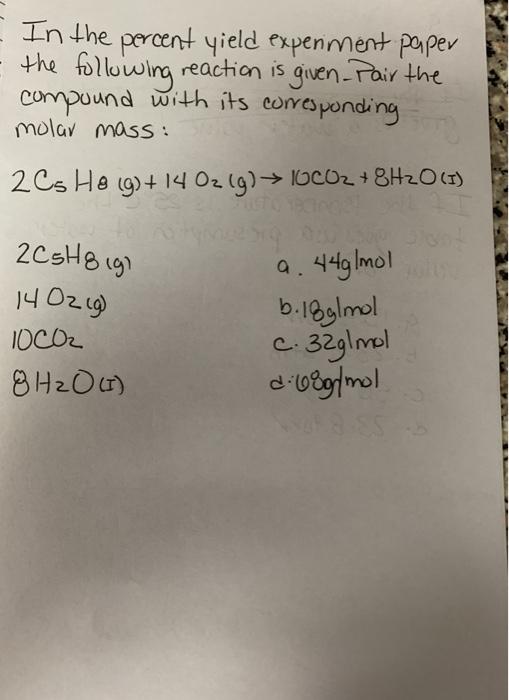 In the percent yield experiment paper
the following reaction is given. Pair the
compound with its corresponding
molar mass:
2C5H8 (g) + 14 O2 (g) → 10CO2 + 8H2O (I)
2C5H8 (g) a. 44g/mol
14 O2 (g) b. 18g/mol
10CO2 c. 32g/mol
8H2O (I) d. 68g/mol